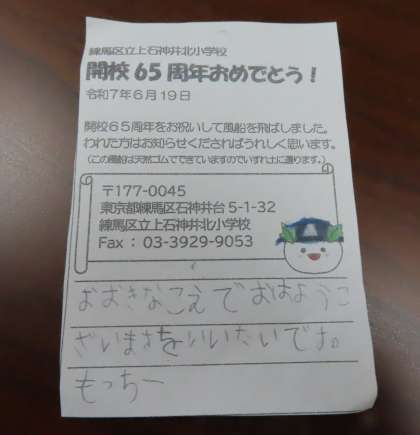 練馬区立上石神井北小学校
開校65周年おめでとう!
令和7年6月19日
開校65周年をお祝いして風船を飛ばしました。
われた方はお知らせくださればうれしく思います。
(この風船は天然ゴムでできていますのでいずれ土に還ります。)
〒177-0045
東京都練馬区石神井台5-1-32
練馬区立上石神井北小学校
Fax : 03-3929-9053
おおきなこえでおはようご
ざいますをいいたいです。
もっちー